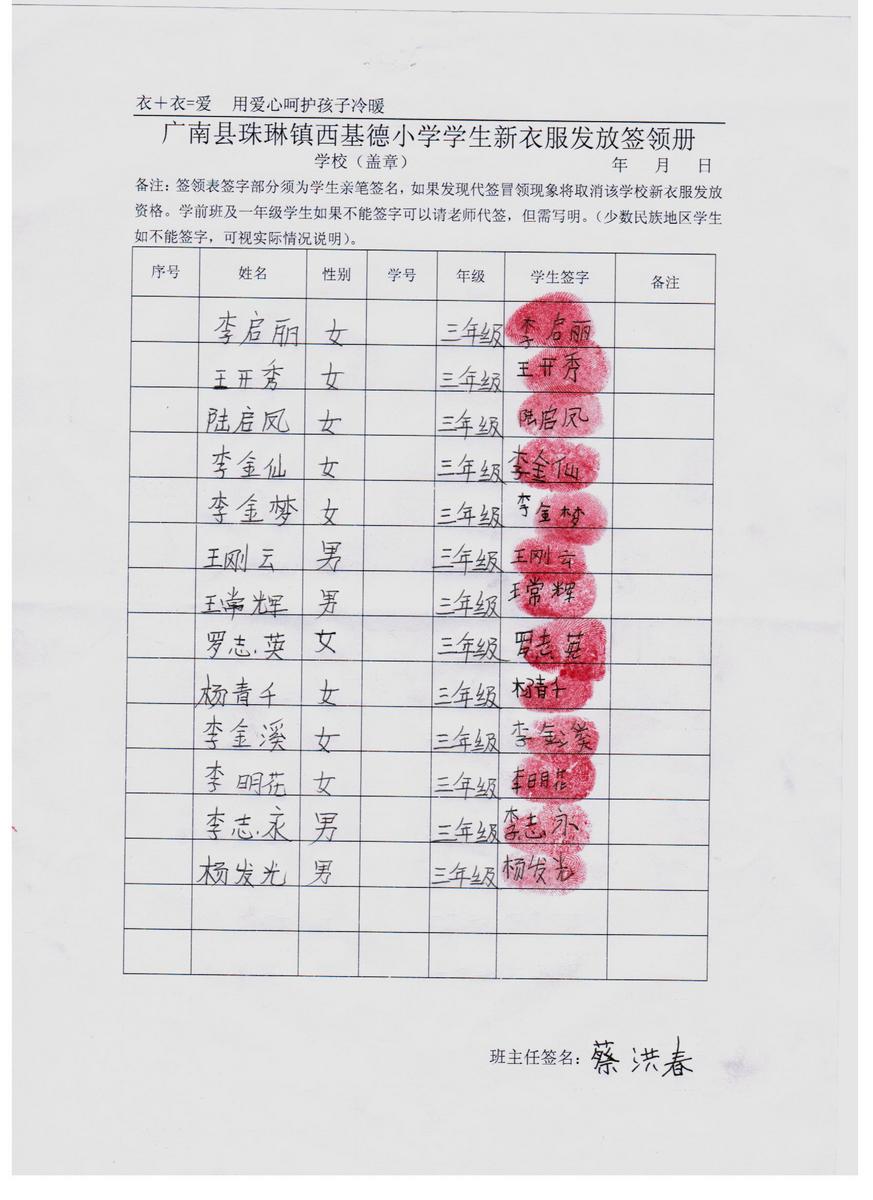 衣＋衣=爱 用爱心呵护孩子冷暖
广南县珠琳镇西基德小学学生新衣服发放签领册
学校（盖章） 年 月 日
备注：签领表签字部分须为学生亲笔签名，如果发现代签冒领现象将取消该学校新衣服发放
资格。学前班及一年级学生如果不能签字可以请老师代签，但需写明。（少数民族地区学生
如不能签字，可视实际情况说明）。
序号 姓名 性别 学号 年级 学生签字 备注
李启丽 女 三年级 李启丽
王开秀 女 三年级 王开秀
陆启凤 女 三年级 陆启凤
李金仙 女 三年级 李金仙
李金梦 女 三年级 李金梦
王刚云 男 三年级 王刚云
王常辉 男 三年级 王常辉
罗志英 女 三年级 罗志英
杨青千 女 三年级 杨青千
李金溪 女 三年级 李金溪
李明花 女 三年级 李明花
李志永 男 三年级 李志永
杨发光 男 三年级 杨发光
班主任签名：蔡洪春